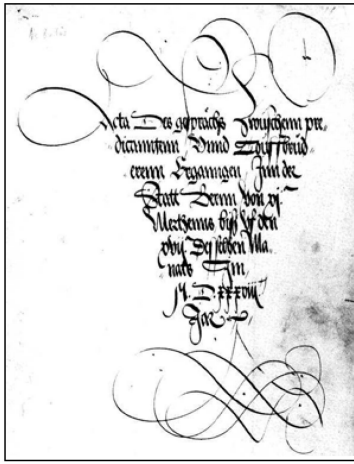 Acta Des gesprächs zwüschenn pre=
dicanntenn Vnnd Touffbrüd
erenn Ergangen Inn der
Statt Bernn von xj.
Mertzenns biß vf den
xvij. Desselben Mo
nats Im
M. D. xxxviij
Jar